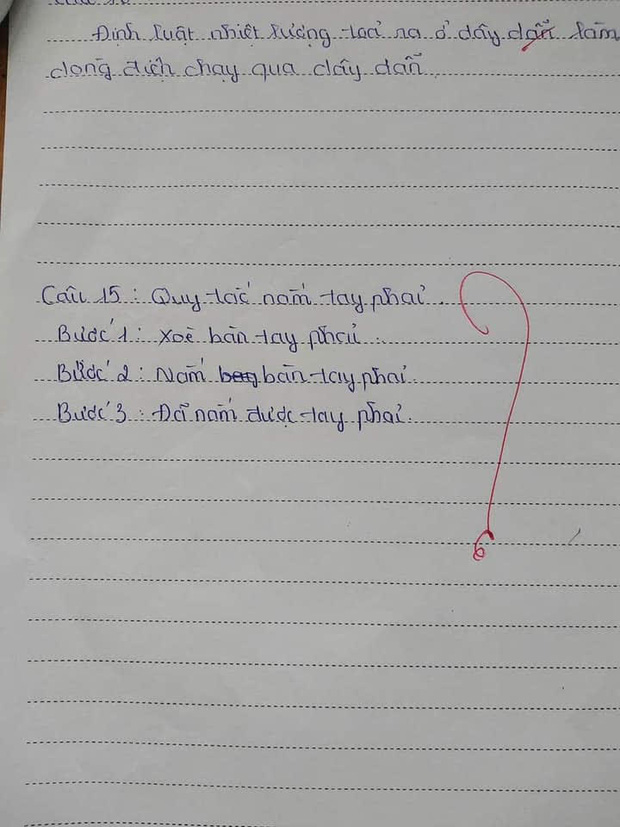 Định luật nhiệt lượng toả ra ở dây dẫn làm
dòng điện chạy qua dây dẫn
Câu 15 : Quy tắc nắm tay phải .
Bước 1 : Xoè bàn tay phải .
Bước 2 : Nắm bàn tay phải
Bước 3 : Đã nắm được tay phải .